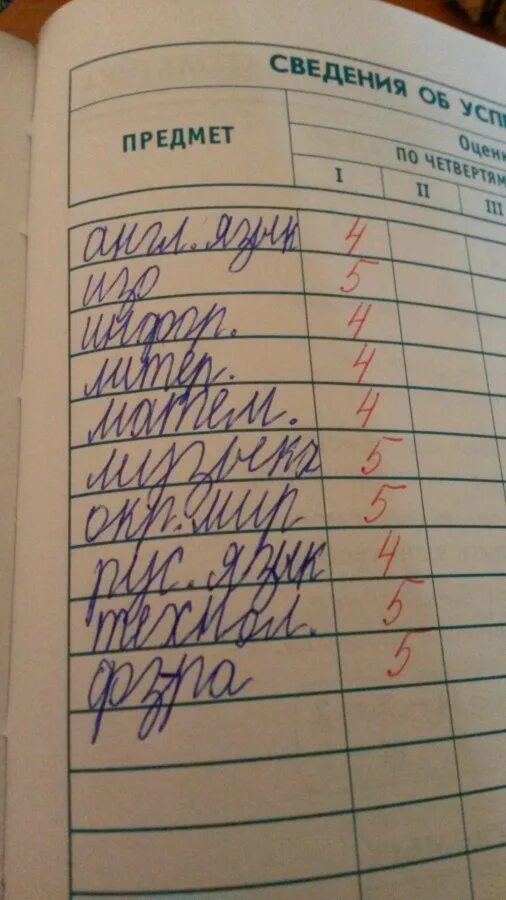 СВЕДЕНИЯ ОБ УСП
ПРЕДМЕТ
Оценк
ПО ЧЕТВЕРТЯМ
I II III
англ. язык 4
изо 5
информ. 4
литер. 4
матем. 4
музыка 5
окр. мир 5
рус. язык 4
технол. 5
физра 5